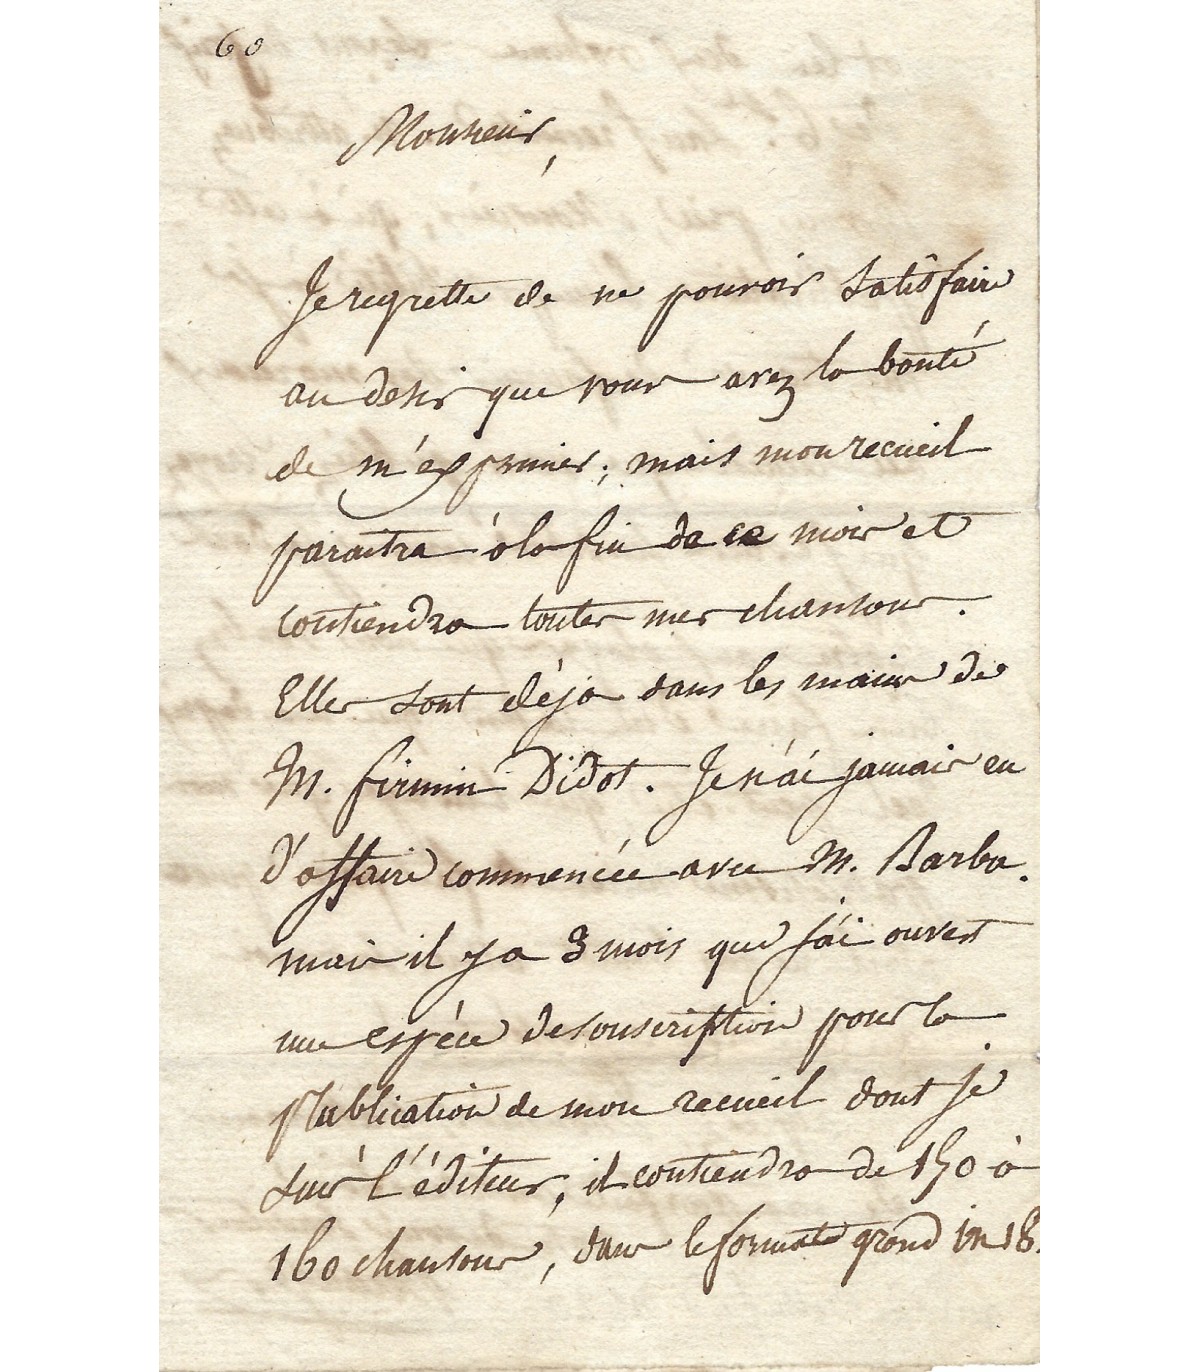 60
Monsieur,
Je regrette de ne pouvoir satisfaire
au desir que vous avez la bonté
de m'exprimer; mais mon recueil
paraitra à la fin de ce mois et
contiendra toutes mes chansons.
Elles sont déja dans les mains de
M. firmin Didot. Je n'ai jamais eu
d'affaire commencée avec M. Barba.
mais il y a 3 mois que j'ai ouvert
une espèce de souscription pour la
publication de mon recueil dont je
suis l'éditeur, il contiendra de 150 à
160 chansons, dans le format grand in 18.